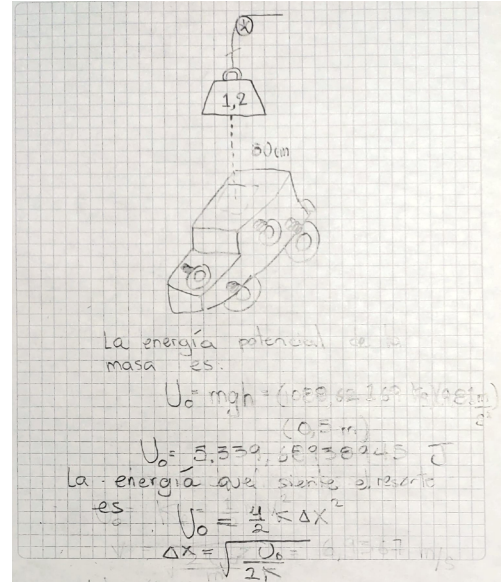 1,2
La energía potencial de la
masa es:
U₀ = mgh =
(0,5 m)
U₀ = 5.339, J
La energía que siente el resorte
es U₀ = 4/2 K ΔX²
ΔX = √(U₀/2K)